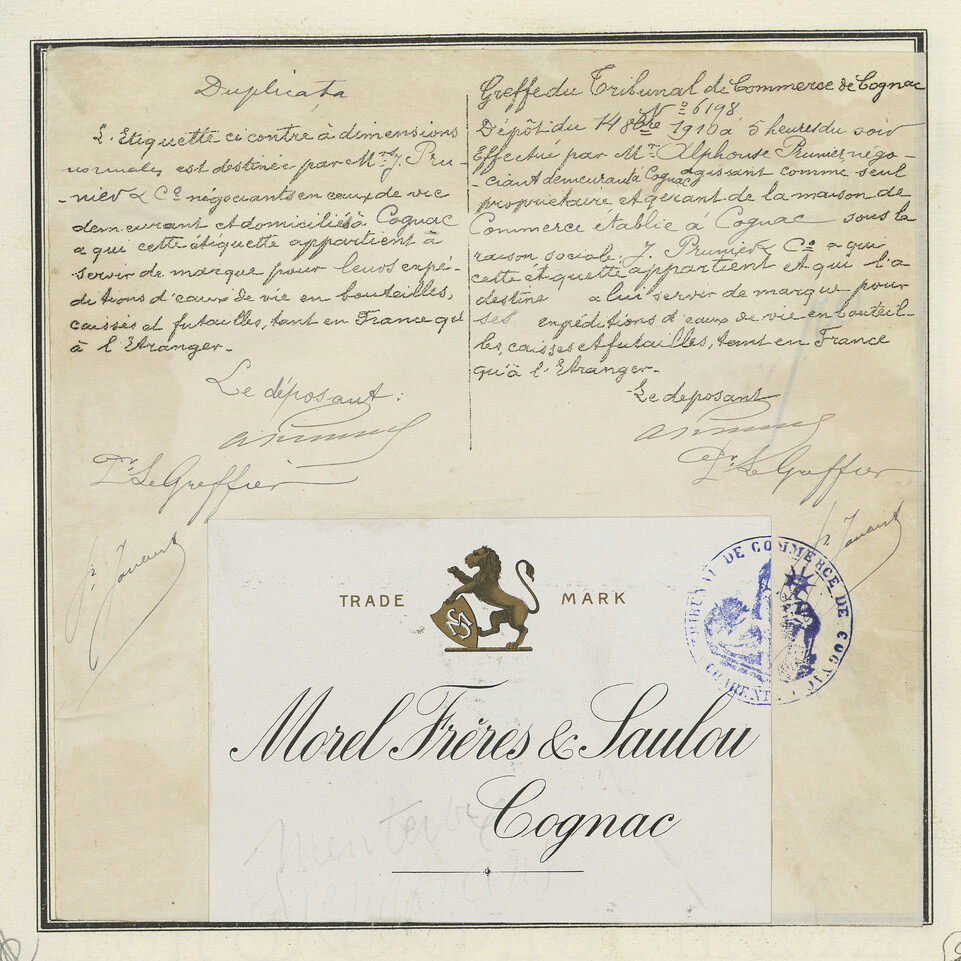 Duplicata
L'Etiquette ci contre à dimensions
normales est destinée par Mr. J. Pru-
-nier & Co négociants en eaux de vie
demeurant et domiciliés à Cognac
a qui cette étiquette appartient à
servir de marque pour leurs expé-
ditions d'eaux de vie en boutailles,
caisses et futailles, tant en France qu'
à l'Etranger.
Le déposant :
Pr Le Greffier
Greffe du Tribunal de Commerce de Cognac
No 6198
Dépôt du 14 8bre 1910 a 5 heures du soir
Effectué par Mr. Alphonse Prunier, négo-
-ciant demeurant à Cognac agissant comme seul
propriétaire et gérant de la maison de
Commerce établie à Cognac sous la
raison sociale: J. Prunier & Co a qui
cette étiquette appartient et qui l'a
destine a lui servir de marque pour
ses expéditions d'eaux de vie en bouteil-
les, caisses et futailles, tant en France
qu'à l'Etranger.
Le deposant
Pr Le Greffier
TRADE MARK
Morel Frères & Saulou
Cognac
TRIBUNAL DE COMMERCE DE COGNAC
CHARENTE